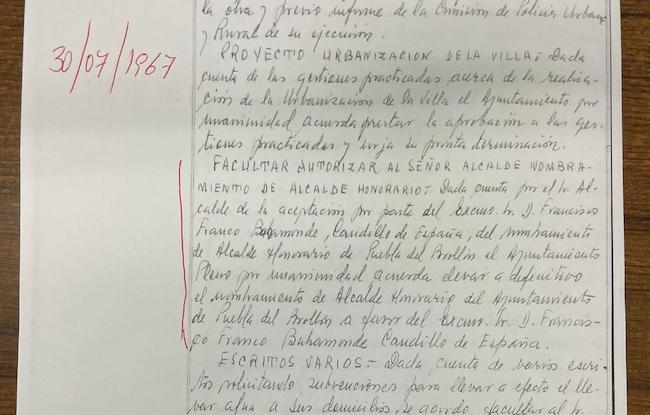 la obra y previo informe de la Comisión de Policía Urbana
y Rural de su ejecución.
30/07/1967
PROYECTO URBANIZACION DE LA VILLA.- Dada
cuenta de las gestiones practicadas acerca de la realiza-
ción de la Urbanización de la Villa el Ayuntamiento por
unanimidad acuerda prestar la aprobación a las ges-
tiones practicadas y urja su pronta terminación.
FACULTAR AUTORIZAR AL SEÑOR ALCALDE NOMBRA-
MIENTO DE ALCALDE HONORARIO.- Dada cuenta por el Sr. Al-
calde de la aceptación por parte del Excmo. Sr. D. Francisco
Franco Bahamonde, Caudillo de España, del nombramiento
de Alcalde Honorario de Puebla del Brollón el Ayuntamiento
Pleno por unanimidad acuerda elevar a definitivo
el nombramiento de Alcalde Honorario del Ayuntamiento
de Puebla del Brollón a favor del Excmo. Sr. D. Francis-
co Franco Bahamonde Caudillo de España.
ESCRITOS VARIOS.- Dada cuenta de varios escri-
tos solicitando subvenciones para llevar a efecto el lle-
var agua a sus domicilios, se acordó facultar al Sr.